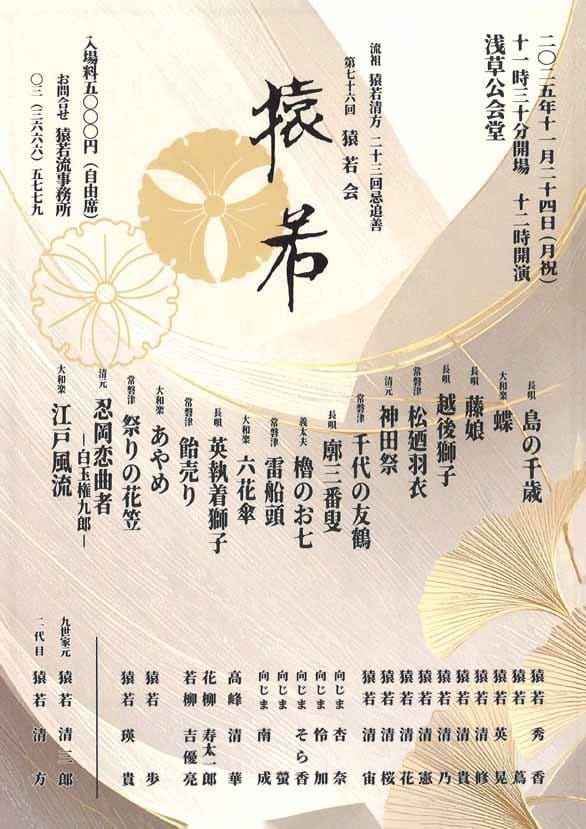 二〇二五年十一月二十四日(月祝)
十一時三十分開場 十二時開演
浅草公会堂
流祖 猿若清方 二十三回忌追善
第七十六回 猿若会
猿若
入場料五〇〇〇円(自由席)
お問合せ 猿若流事務所
〇三(三六六六)五七七九
長唄 島の千歳
大和楽 蝶
長唄 藤娘
長唄 越後獅子
常磐津 松廼羽衣
清元 神田祭
常磐津 千代の友鶴
長唄 廓三番叟
義太夫 櫓のお七
常磐津 雷船頭
大和楽 六花傘
長唄 英執着獅子
常磐津 飴売り
大和楽 あやめ
常磐津 祭りの花笠
清元 忍岡恋曲者
―白玉権九郎―
大和楽 江戸風流
猿若 秀香
猿若 蔦
猿若 英晃
猿若 清修
猿若 清貴
猿若 清乃
猿若 清憲
猿若 清花
猿若 清桜
猿若 清宙
向じま 杏奈
向じま 怜加
向じま そら香
向じま 螢
向じま 南成
高峰 清華
花柳 寿太一郎
若柳 吉優亮
猿若 歩
猿若 瑛貴
九世家元 猿若 清三郎
二代目 猿若 清方